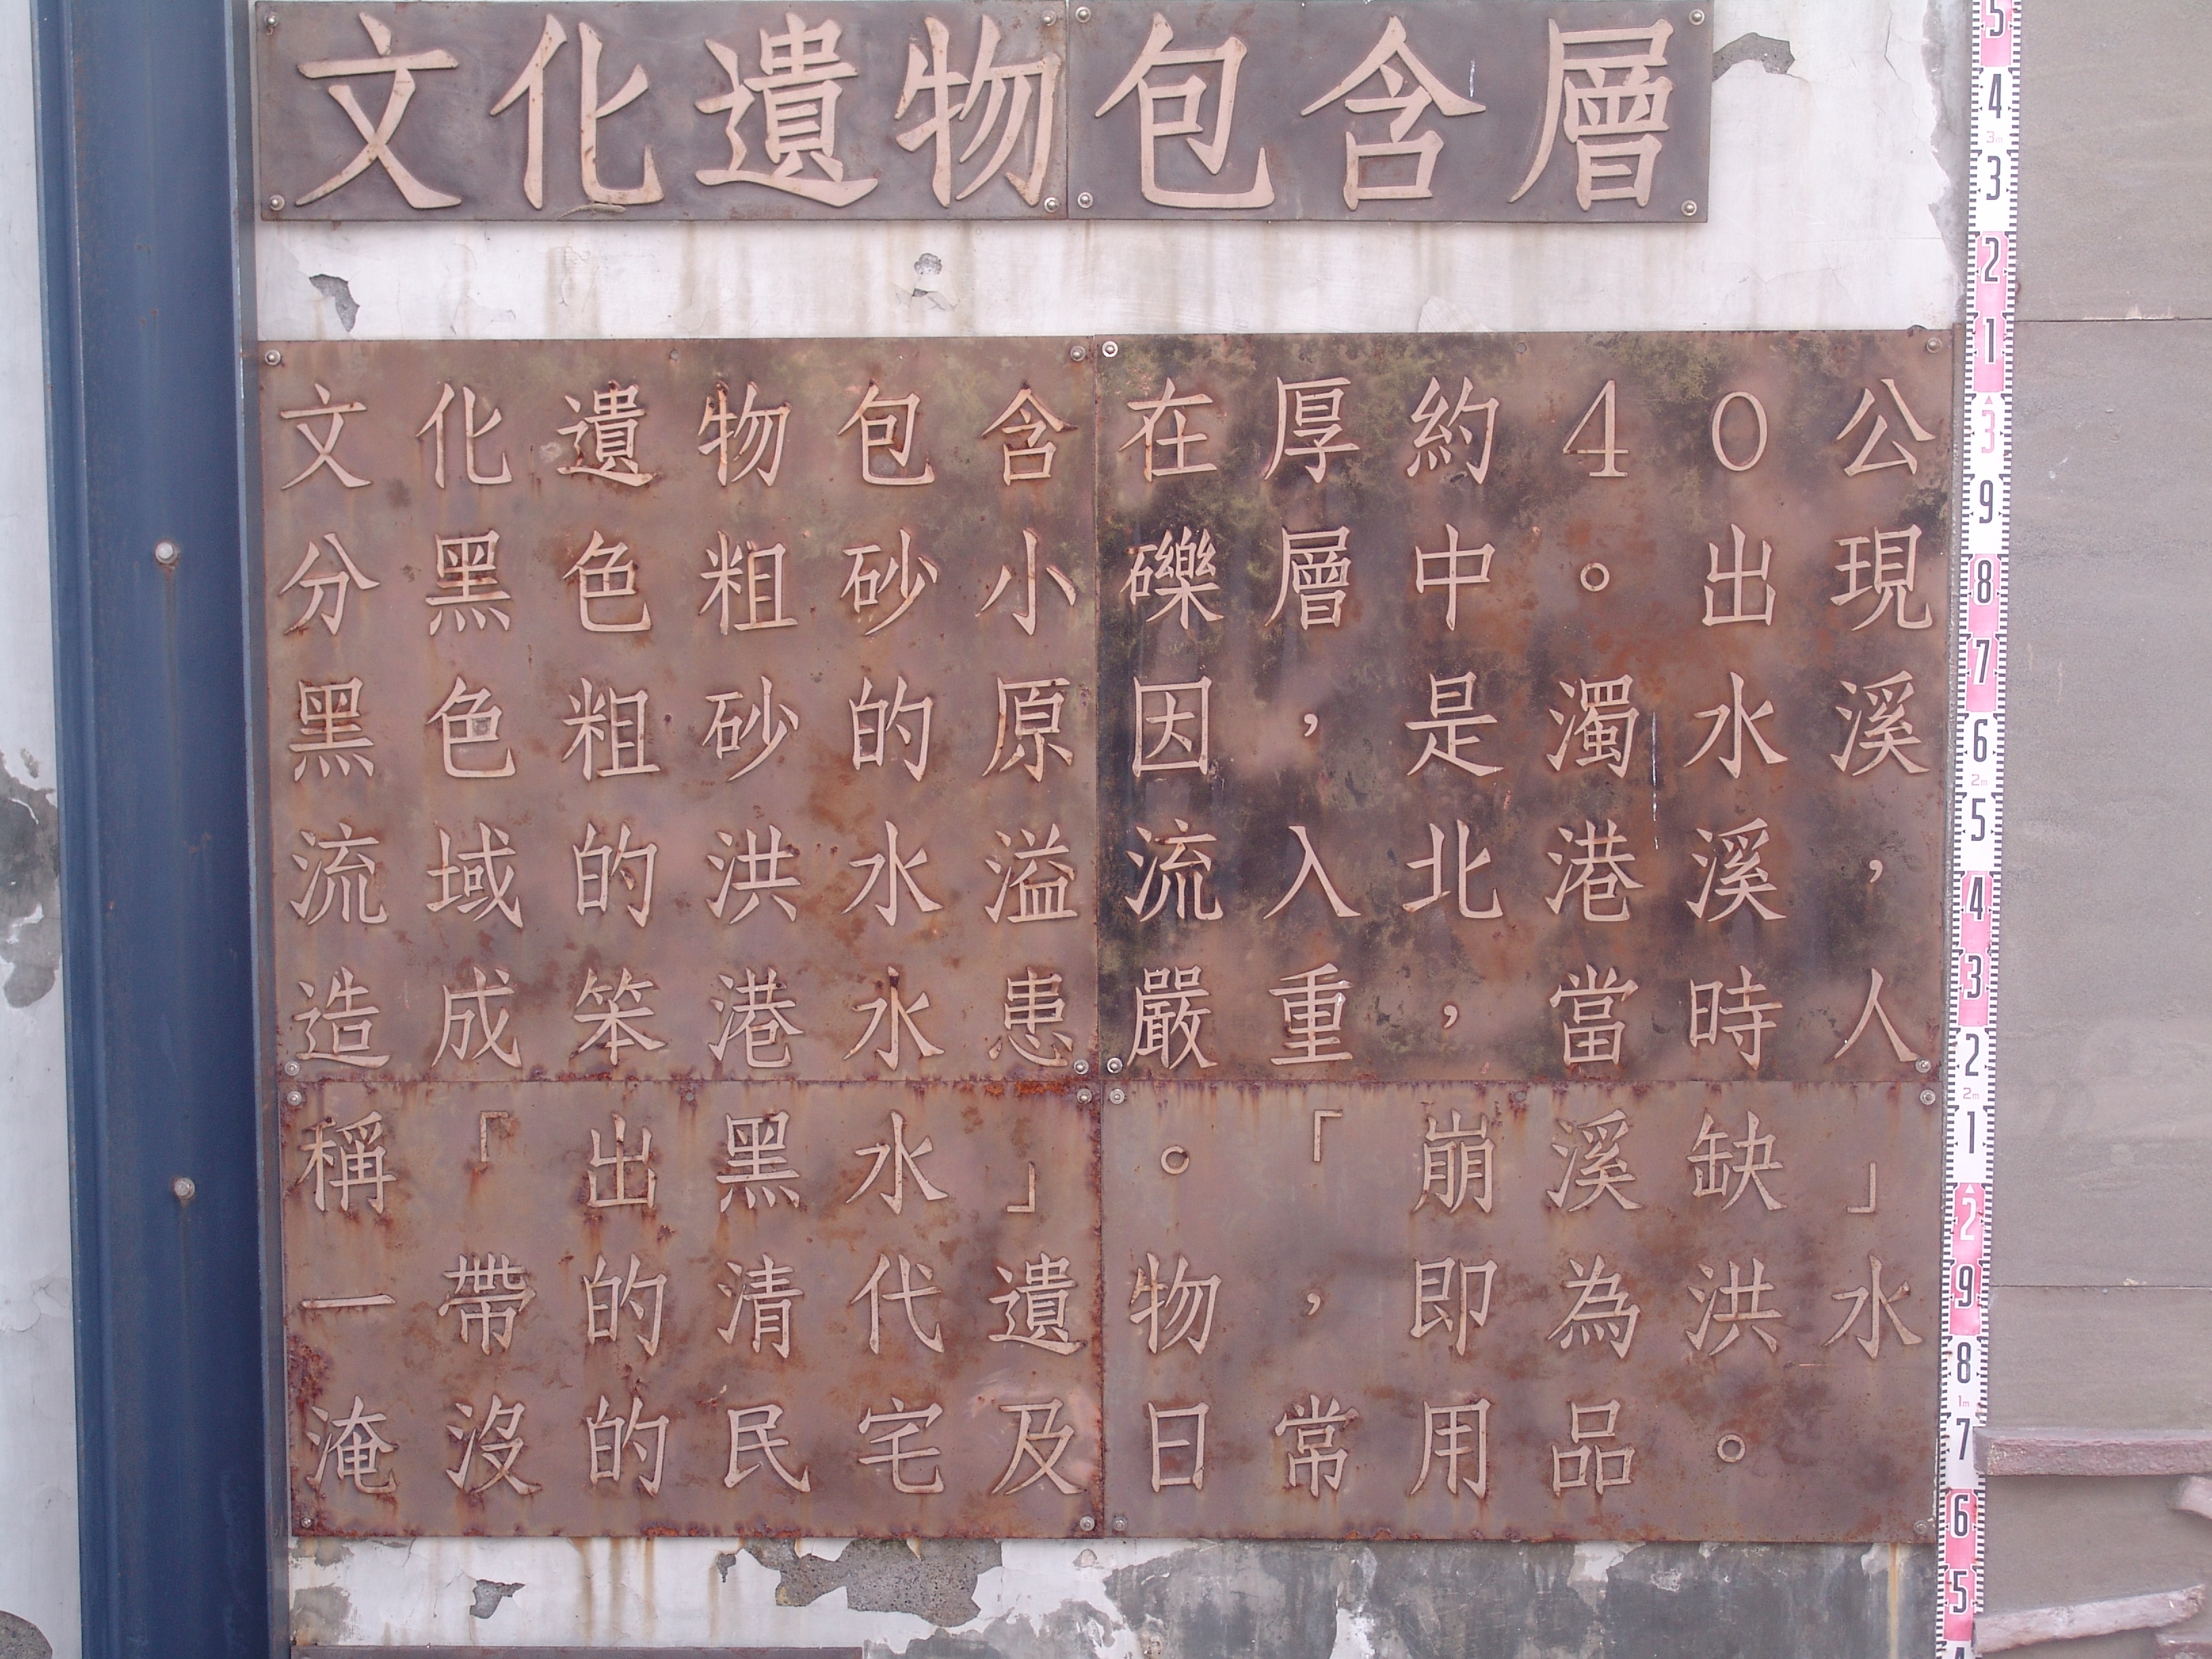 文化遺物包含層
文化遺物包含在厚約40公
分黑色粗砂小礫層中。出現
黑色粗砂的原因，是濁水溪
流域的洪水溢流入北港溪，
造成笨港水患嚴重，當時人
稱「出黑水」。「崩溪缺」
一帶的清代遺物，即為洪水
淹沒的民宅及日常用品。
5
4
3m
3
2
1
3
9
8
7
6
2m
5
4
3
2
2m
1
2
9
8
1m
7
6
5